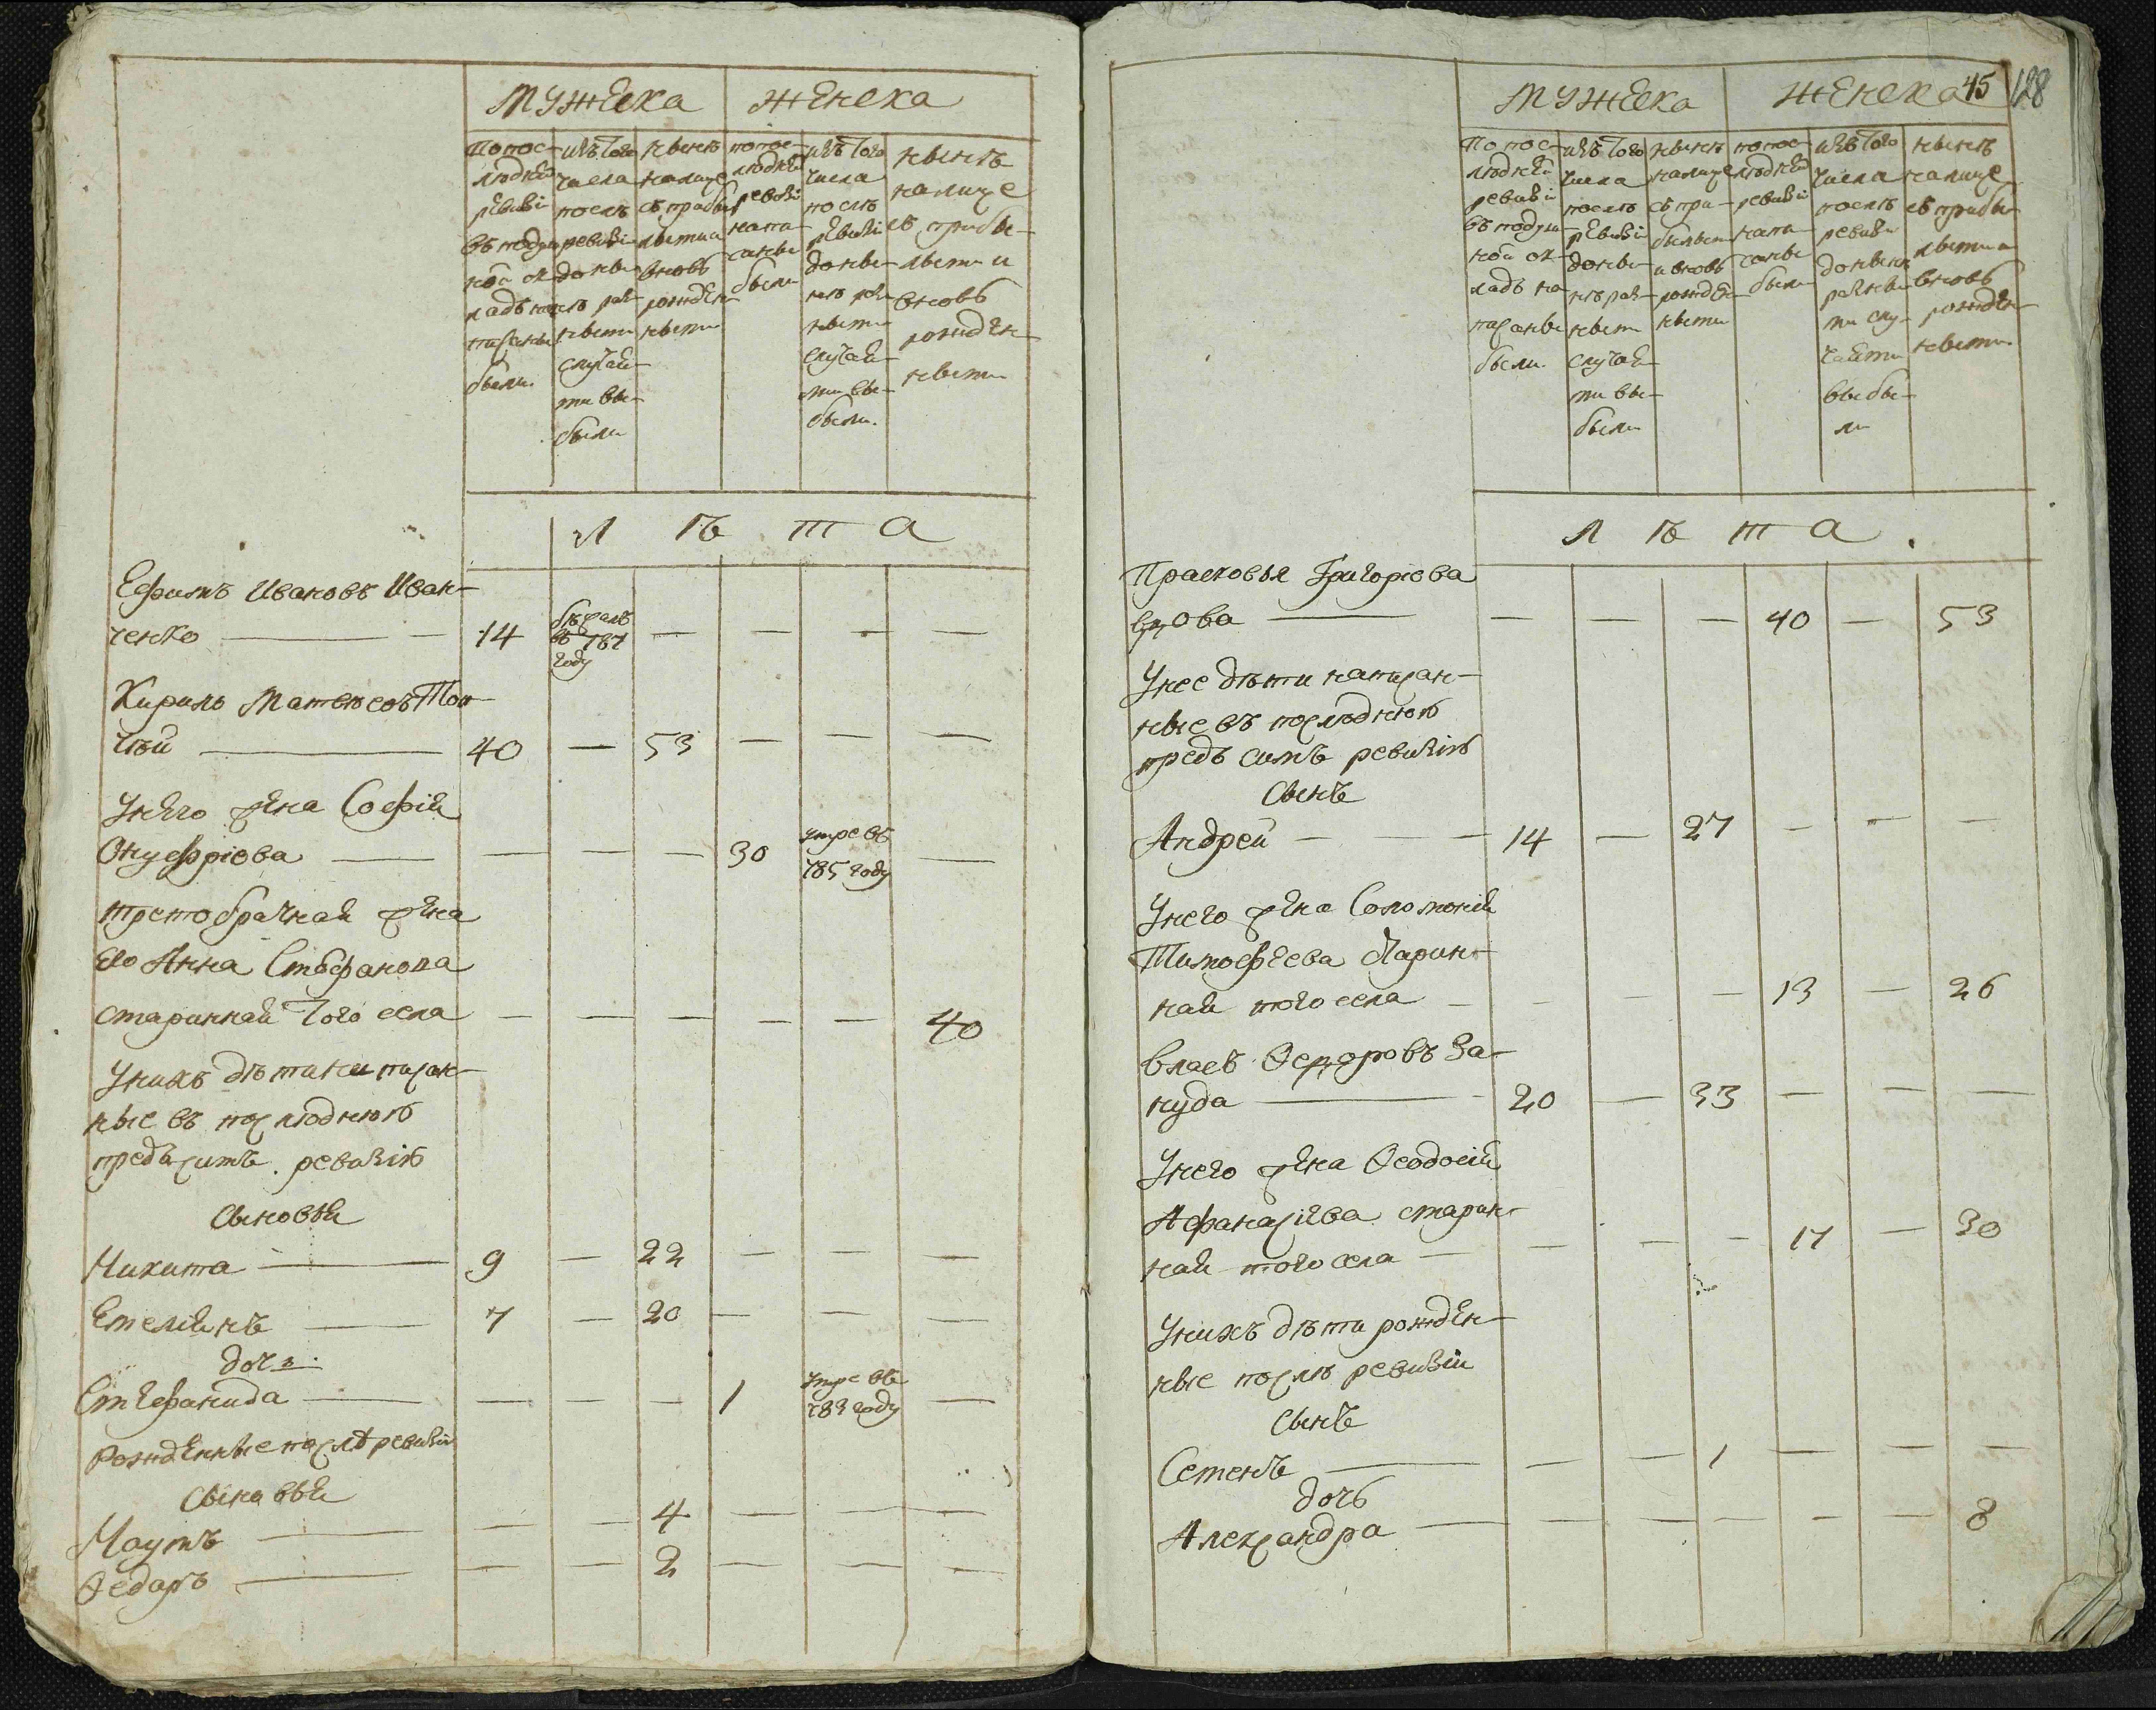 Мужеска Женска
По пос-
лѣдней
ревизіи
въ подуш-
ной ок-
ладѣ на-
писаны
были.
изъ того
числа
послѣ
ревизіи
до ны-
нѣ раз-
ными
случаи-
ми вы-
были
нынѣ
налице
съ прибы-
лыми и
вновь
рожден-
ными
по пос-
лѣдней
ревизіи
напи-
саны
были
изъ того
числа
послѣ
ревизіи
до ны-
нѣ раз-
ными
случаи-
ми вы-
были.
нынѣ
налице
съ прибы-
лыми и
вновь
рожден-
ными
Л ѣ т а
Ефимъ Ивановъ Иван-
ченко — 14 бѣжалъ въ 787 году — — — —
Кирилъ Матвѣевъ
40 — 53 — — —
У него жена Софія
Онуфріева — — — — 30 умре въ 785 году —
третобрачная жена
его Анна Стефанова
старинная того села — — — — — 40
У нихъ дѣти написан-
ные въ послѣднюю
предъ симъ ревизію
сыновья
Никита — 9 — 22 — — —
Емельянъ — 7 — 20 — — —
дочь
Стефанида — — — — 1 умре въ 783 году —
Рожденные послѣ ревизіи
сыновья
Наумъ — — — 4 — — —
Ѳедоръ — — — 2 — — —
Мужеска Женска 45 128
По пос-
лѣдней
ревизіи
въ подуш-
ной ок-
ладъ на-
писаны
были.
изъ того
числа
послѣ
ревизіи
до ны-
нѣ раз-
ными
случаи-
ми вы-
были
нынѣ
налице
съ при-
былыми
и вновь
рожден-
ными
по пос-
лѣдней
ревизіи
напи-
саны
были
изъ того
числа
послѣ
ревизіи
до нынѣ
разны-
ми слу-
чаими
выбы-
ли
нынѣ
налице
съ прибы-
лыми и
вновь
рожден-
ными.
Л ѣ т а .
Прасковья Григоріева
вдова — — — — 40 — 53
У нее дѣти написан-
ные въ послѣднюю
предъ симъ ревизію
сынъ
Андрей — 14 — 27 — — —
У него жена Соломонія
Тимофѣева старин-
ная того села — — — — 13 — 26
Власъ Ѳедоровъ За-
нуда — 20 — 33 — — —
У него жена Ѳеодосія
Афанасіева старин-
ная того села — — — — 17 — 30
У нихъ дѣти рожден-
ные послѣ ревизіи
сынъ
Семенъ — — — 1 — — —
дочь
Александра — — — — — — 8